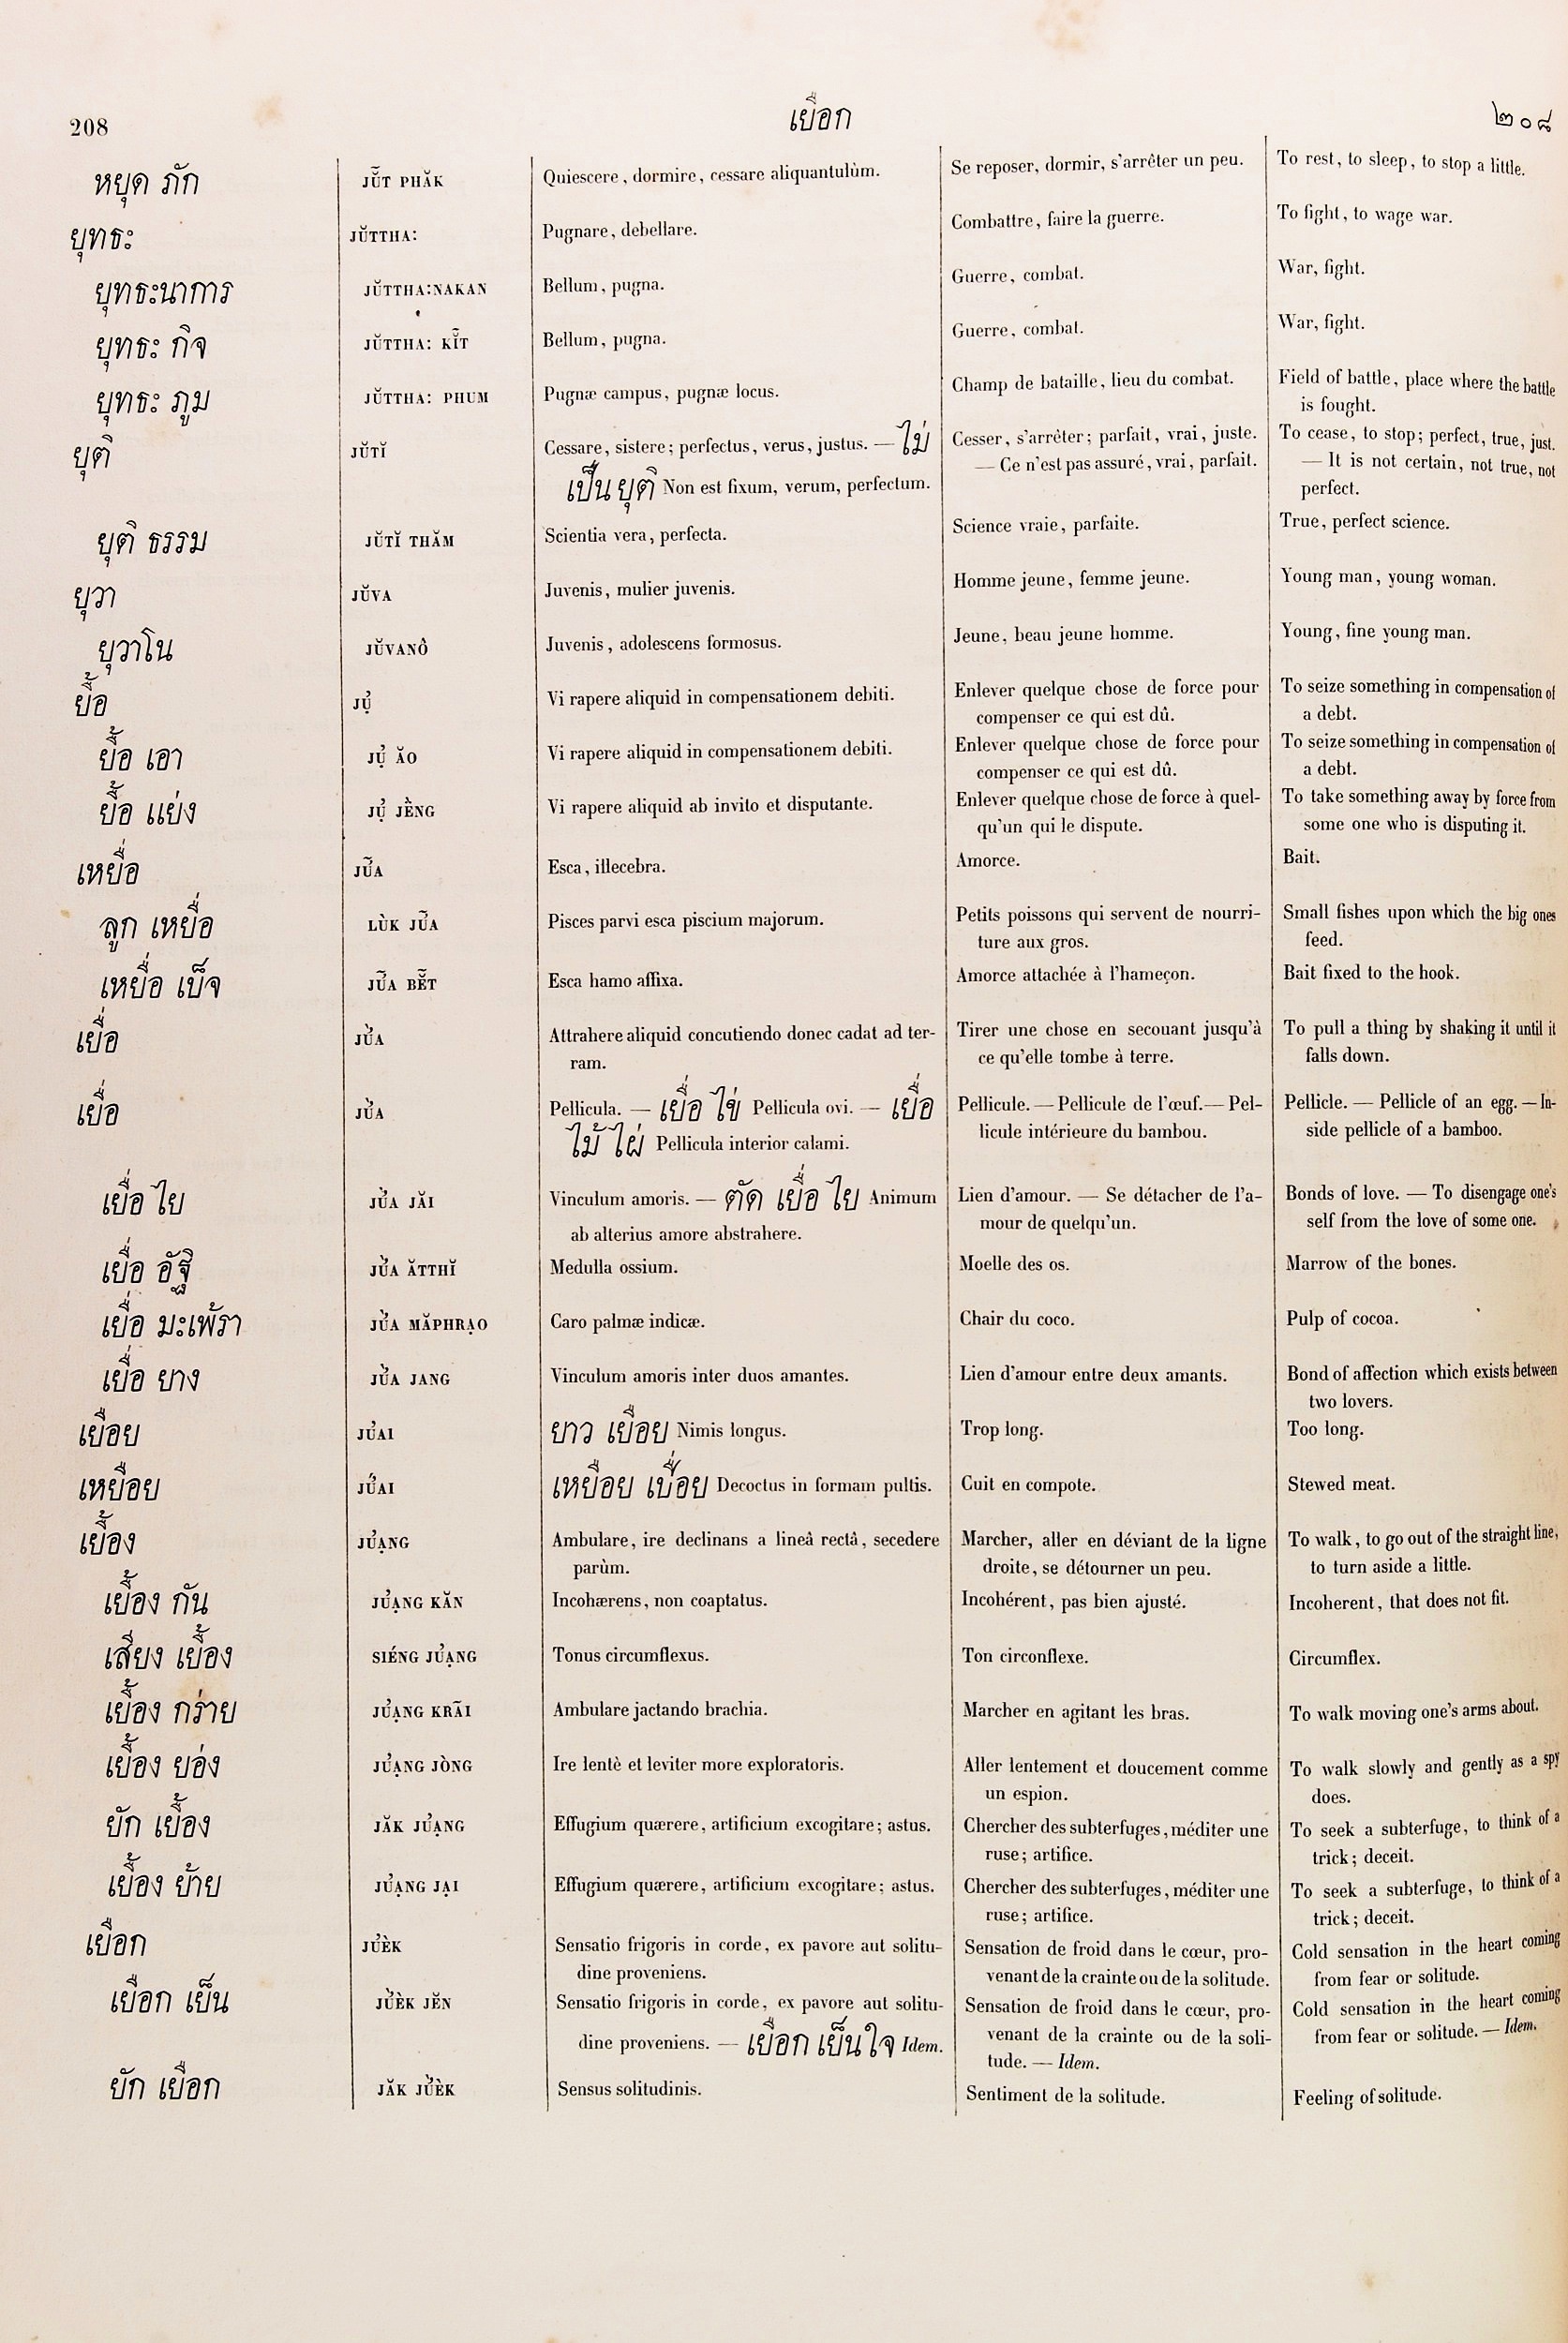 208 เยือก ๒๐๘
หยุด ภัก JŬ̃T PHĂK Quiescere, dormire, cessare aliquantulùm. Se reposer, dormir, s'arrêter un peu. To rest, to sleep, to stop a little.
ยุทธะ JŬTTHA: Pugnare, debellare. Combattre, faire la guerre. To fight, to wage war.
ยุทธะนาการ JŬTTHA:NAKAN Bellum, pugna. Guerre, combat. War, fight.
ยุทธะ กิจ JŬTTHA: KĬ̃T Bellum, pugna. Guerre, combat. War, fight.
ยุทธะ ภูม JŬTTHA: PHUM Pugnæ campus, pugnæ locus. Champ de bataille, lieu du combat. Field of battle, place where the battle
is fought.
ยุติ JŬTĬ Cessare, sistere; perfectus, verus, justus. — ไม่ Cesser, s'arrêter; parfait, vrai, juste. To cease, to stop; perfect, true, just.
เป็น ยุติ Non est fixum, verum, perfectum. — Ce n'est pas assuré, vrai, parfait. — It is not certain, not true, not
perfect.
ยุติ ธรรม JŬTĬ THĂM Scientia vera, perfecta. Science vraie, parfaite. True, perfect science.
ยุวา JŬVA Juvenis, mulier juvenis. Homme jeune, femme jeune. Young man, young woman.
ยุวาโน JŬVANÔ Juvenis, adolescens formosus. Jeune, beau jeune homme. Young, fine young man.
ยื้อ JỤ̉ Vi rapere aliquid in compensationem debiti. Enlever quelque chose de force pour To seize something in compensation of
compenser ce qui est dû. a debt.
ยื้อ เอา JỤ̉ ĂO Vi rapere aliquid in compensationem debiti. Enlever quelque chose de force pour To seize something in compensation of
compenser ce qui est dû. a debt.
ยื้อ แย่ง JỤ̉ JÈNG Vi rapere aliquid ab invito et disputante. Enlever quelque chose de force à quel- To take something away by force from
qu'un qui le dispute. some one who is disputing it.
เหยื่อ JỦ̃A Esca, illecebra. Amorce. Bait.
ลูก เหยื่อ LÙK JỦ̃A Pisces parvi esca piscium majorum. Petits poissons qui servent de nourri- Small fishes upon which the big ones
ture aux gros. feed.
เหยื่อ เบ็จ JỦ̃A BĔ̃T Esca hamo affixa. Amorce attachée à l'hameçon. Bait fixed to the hook.
เยื่อ JỦ̀A Attrahere aliquid concutiendo donec cadat ad ter- Tirer une chose en secouant jusqu'à To pull a thing by shaking it until it
ram. ce qu'elle tombe à terre. falls down.
เยื่อ JỦ̀A Pellicula. — เยื่อ ไข่ Pellicula ovi. — เยื่อ Pellicule. — Pellicule de l'œuf. — Pel- Pellicle. — Pellicle of an egg. — In-
ไม้ ไผ่ Pellicula interior calami. licule intérieure du bambou. side pellicle of a bamboo.
เยื่อ ไย JỦ̀A JĂI Vinculum amoris. — ตัด เยื่อ ไย Animum Lien d'amour. — Se détacher de l'a- Bonds of love. — To disengage one's
ab alterius amore abstrahere. mour de quelqu'un. self from the love of some one.
เยื่อ อัฐิ JỦ̀A ĂTTHĬ Medulla ossium. Moelle des os. Marrow of the bones.
เยื่อ มะเพ้รา JỦ̀A MĂPHRẠO Caro palmæ indicæ. Chair du coco. Pulp of cocoa.
เยื่อ ยาง JỦ̀A JANG Vinculum amoris inter duos amantes. Lien d'amour entre deux amants. Bond of affection which exists between
two lovers.
เยือย JỦAI ยาว เยือย Nimis longus. Trop long. Too long.
เหยือย JỦ́AI เหยือย เปื่อย Decoctus in formam pultis. Cuit en compote. Stewed meat.
เยื้อง JỦẠNG Ambulare, ire declinans a lineâ rectâ, secedere Marcher, aller en déviant de la ligne To walk, to go out of the straight line,
parùm. droite, se détourner un peu. to turn aside a little.
เยื้อง กัน JỦẠNG KĂN Incohærens, non coaptatus. Incohérent, pas bien ajusté. Incoherent, that does not fit.
เสียง เยื้อง SIÉNG JỦẠNG Tonus circumflexus. Ton circonflexe. Circumflex.
เยื้อง กร่าย JỦẠNG KRÃI Ambulare jactando brachia. Marcher en agitant les bras. To walk moving one's arms about.
เยื้อง ย่อง JỦẠNG JÒNG Ire lentè et leviter more exploratoris. Aller lentement et doucement comme To walk slowly and gently as a spy
un espion. does.
ยัก เยื้อง JĂK JỦẠNG Effugium quærere, artificium excogitare; astus. Chercher des subterfuges, méditer une To seek a subterfuge, to think of a
ruse; artifice. trick; deceit.
เยื้อง ย้าย JỦẠNG JẠI Effugium quærere, artificium excogitare; astus. Chercher des subterfuges, méditer une To seek a subterfuge, to think of a
ruse; artifice. trick; deceit.
เยือก JỦÈK Sensatio frigoris in corde, ex pavore aut solitu- Sensation de froid dans le cœur, pro- Cold sensation in the heart coming
dine proveniens. venant de la crainte ou de la solitude. from fear or solitude.
เยือก เย็น JỦÈK JĔN Sensatio frigoris in corde, ex pavore aut solitu- Sensation de froid dans le cœur, pro- Cold sensation in the heart coming
dine proveniens. — เยือก เย็น ใจ Idem. venant de la crainte ou de la soli- from fear or solitude. — Idem.
tude. — Idem.
ยัก เยือก JĂK JỦÈK Sensus solitudinis. Sentiment de la solitude. Feeling of solitude.